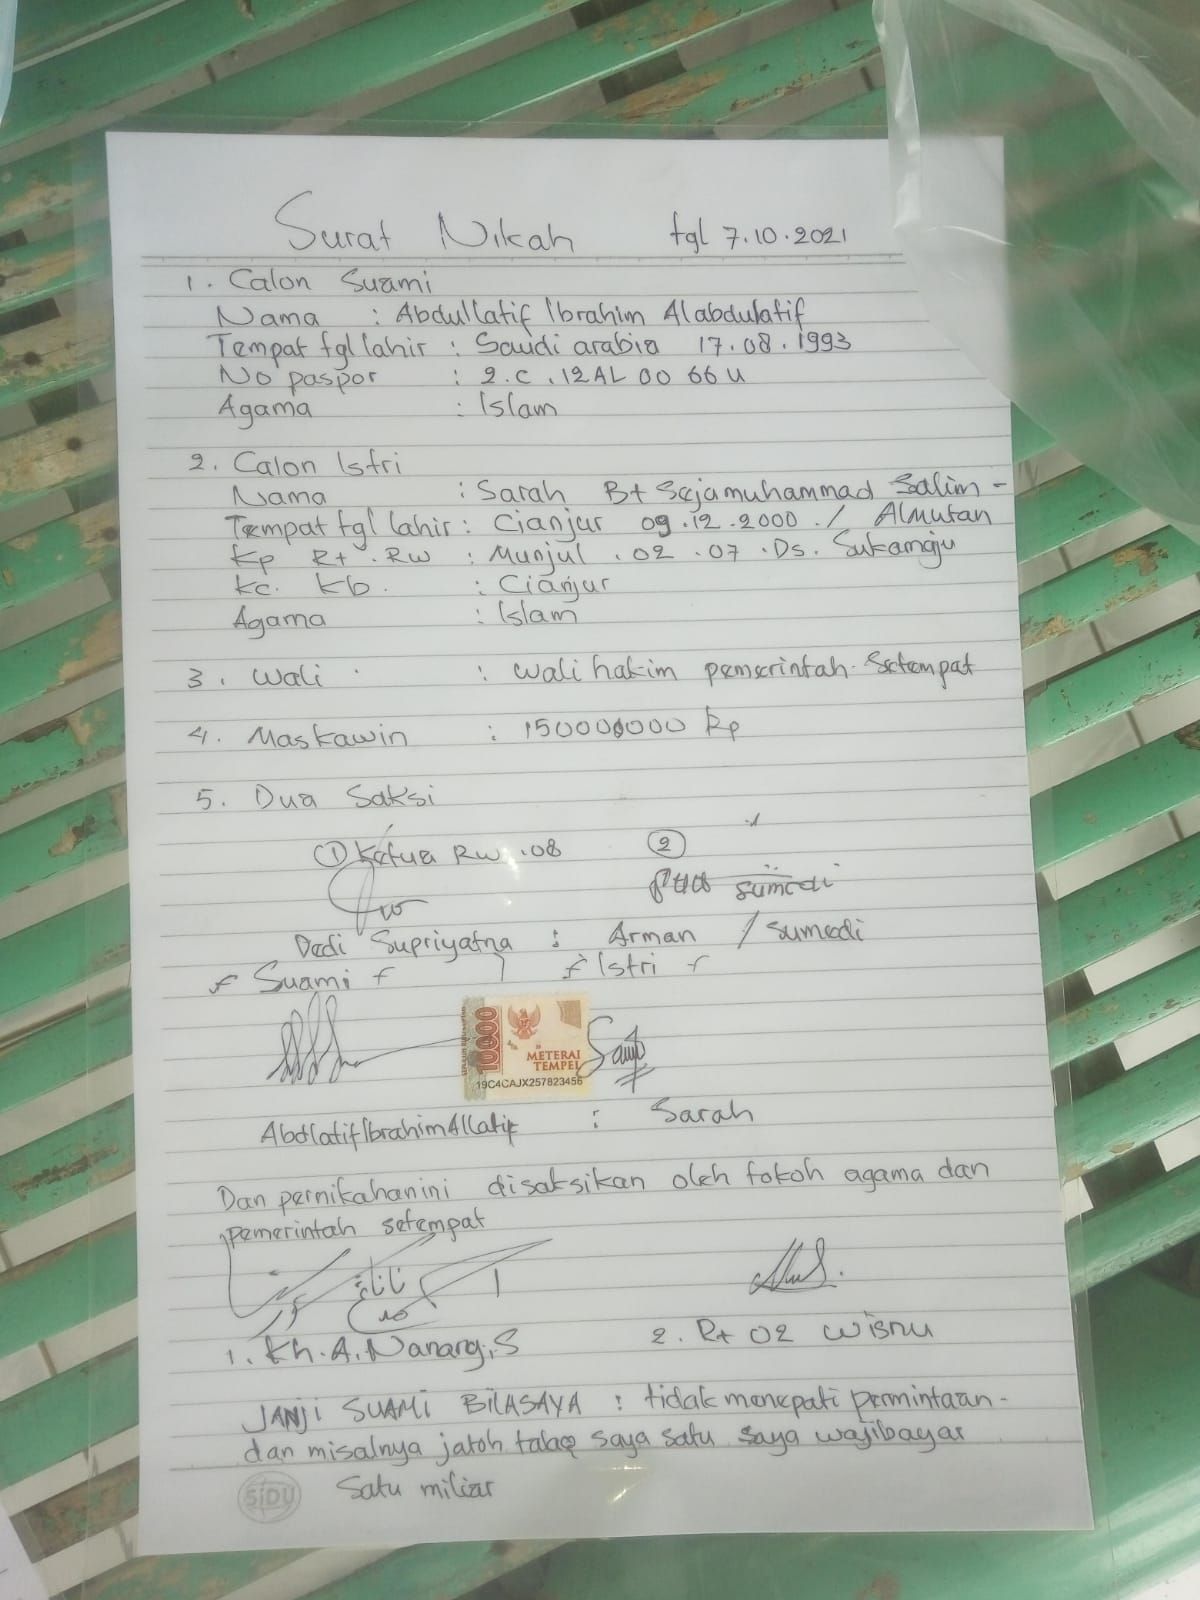 Surat Nikah tgl 7.10.2021
1. Calon Suami
Nama : Abdullatif Ibrahim Alabdulatif
Tempat tgl lahir : Saudi arabia 17.08.1993
No paspor : 2.C.12AL 00 66 U
Agama : Islam
2. Calon Istri
Nama : Sarah Bt Sejamuhammad Salim -
Tempat tgl lahir : Cianjur 09.12.2000 / Almutan
Kp Rt . RW : Munjul . 02 . 07 . Ds. Sukamaju
Kc. Kb. : Cianjur
Agama : Islam
3. Wali : Wali hakim pemerintah Setempat
4. Maskawin : 150000000 Rp
5. Dua Saksi
① Ketua RW .08 ②
sumedi
Dedi Supriyatna : Arman / Sumedi
Suami Istri
10000
METERAI
TEMPEL
19C4CAJX257823456
Abdlatif Ibrahim Allatif : Sarah
Dan pernikahan ini disaksikan oleh tokoh agama dan
pemerintah setempat
1. Kh. A. Nanang, S 2. Rt 02 Wisnu
JANJI SUAMI BILASAYA : tidak menepati permintaan -
dan misalnya jatoh talaq saya satu saya wajibayar
Satu miliar
SiDU